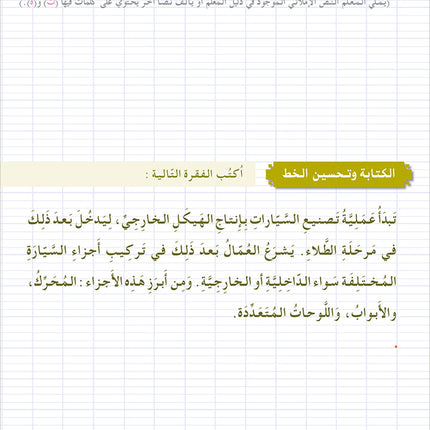 (يُملي المعلّم النصّ الإملائي الموجود في دليل المعلّم أو يؤلف نصًّا آخر يحتوي على كلمات فيها (ت) و(ة).)
الكتابة وتحسين الخط
أكتُب الفقرة التالية :
تَبدَأُ عَمَليَّةُ تَصنيعِ السَّيّاراتِ بِإنتاجِ الهَيكَلِ الخارِجيِّ، لِيَدخُلَ بَعدَ ذَلِكَ
في مَرحَلَةِ الطِّلاءِ. يَشرَعُ العُمّالُ بَعدَ ذَلِكَ في تَركيبِ أجزاءِ السَّيّارَةِ
المُختَلِفَة سَواء الدّاخِليَّةِ أو الخارِجيَّةِ. وَمِن أَبرَزِ هَذِهِ الأَجزاء : المُحَرِّكُ،
والأَبوابُ، وَاللَّوحاتُ المُتَعَدِّدَة.